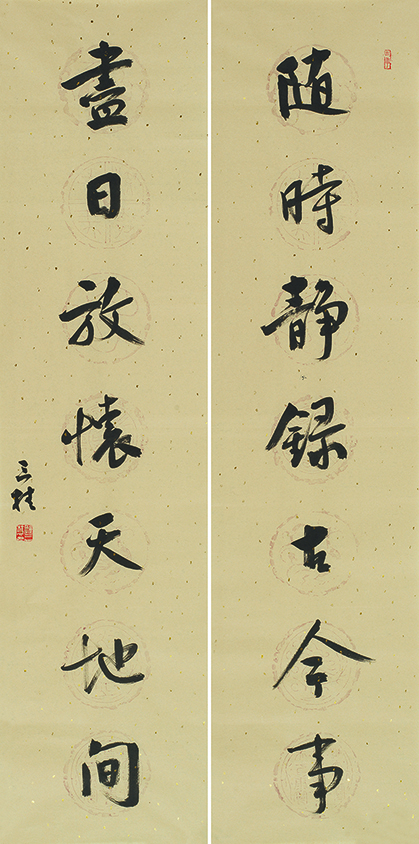 随時静録古今事
盡日放懷天地间
三桂